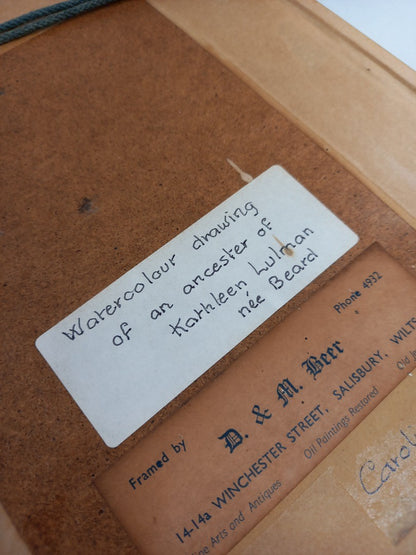 Watercolour drawing
of an ancester of
Kathleen Lulman
née Beard
Phone 4932
Framed by
D. & M. Beer
14-14a WINCHESTER STREET, SALISBURY, WILTS
Fine Arts and Antiques Oil Paintings Restored Old